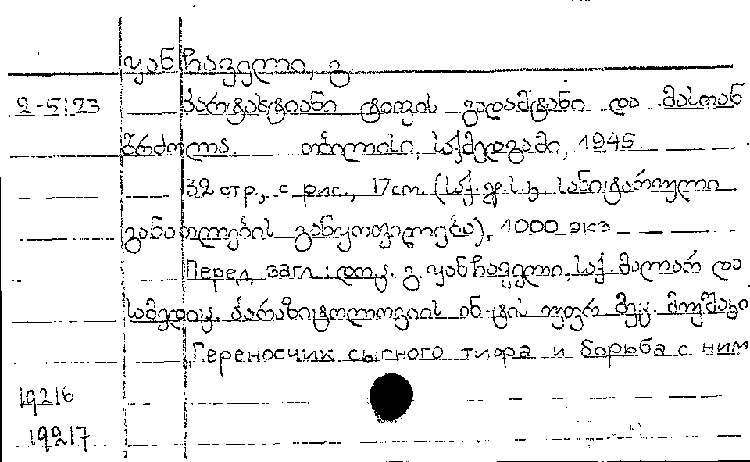 ყანჩაველი, გ.
2-5123 პარტახტიანი ტიფის გადამტანი და მასთან
ბრძოლა. თბილისი, საქმედგამი, 1945
32 стр., с рис., 17 см. (საქ. სსრ სანიტარული
განათლების განყოფილება), 1000 экз
Перед загл: დოც. გ. ყანჩაველი, საქ. მალარ და
სამედიც. პარაზიტოლოგიის ინ-ტის უფრ. მეც. მუშაკი
Переносчик сыпного тифа и борьба с ним
19216
19217